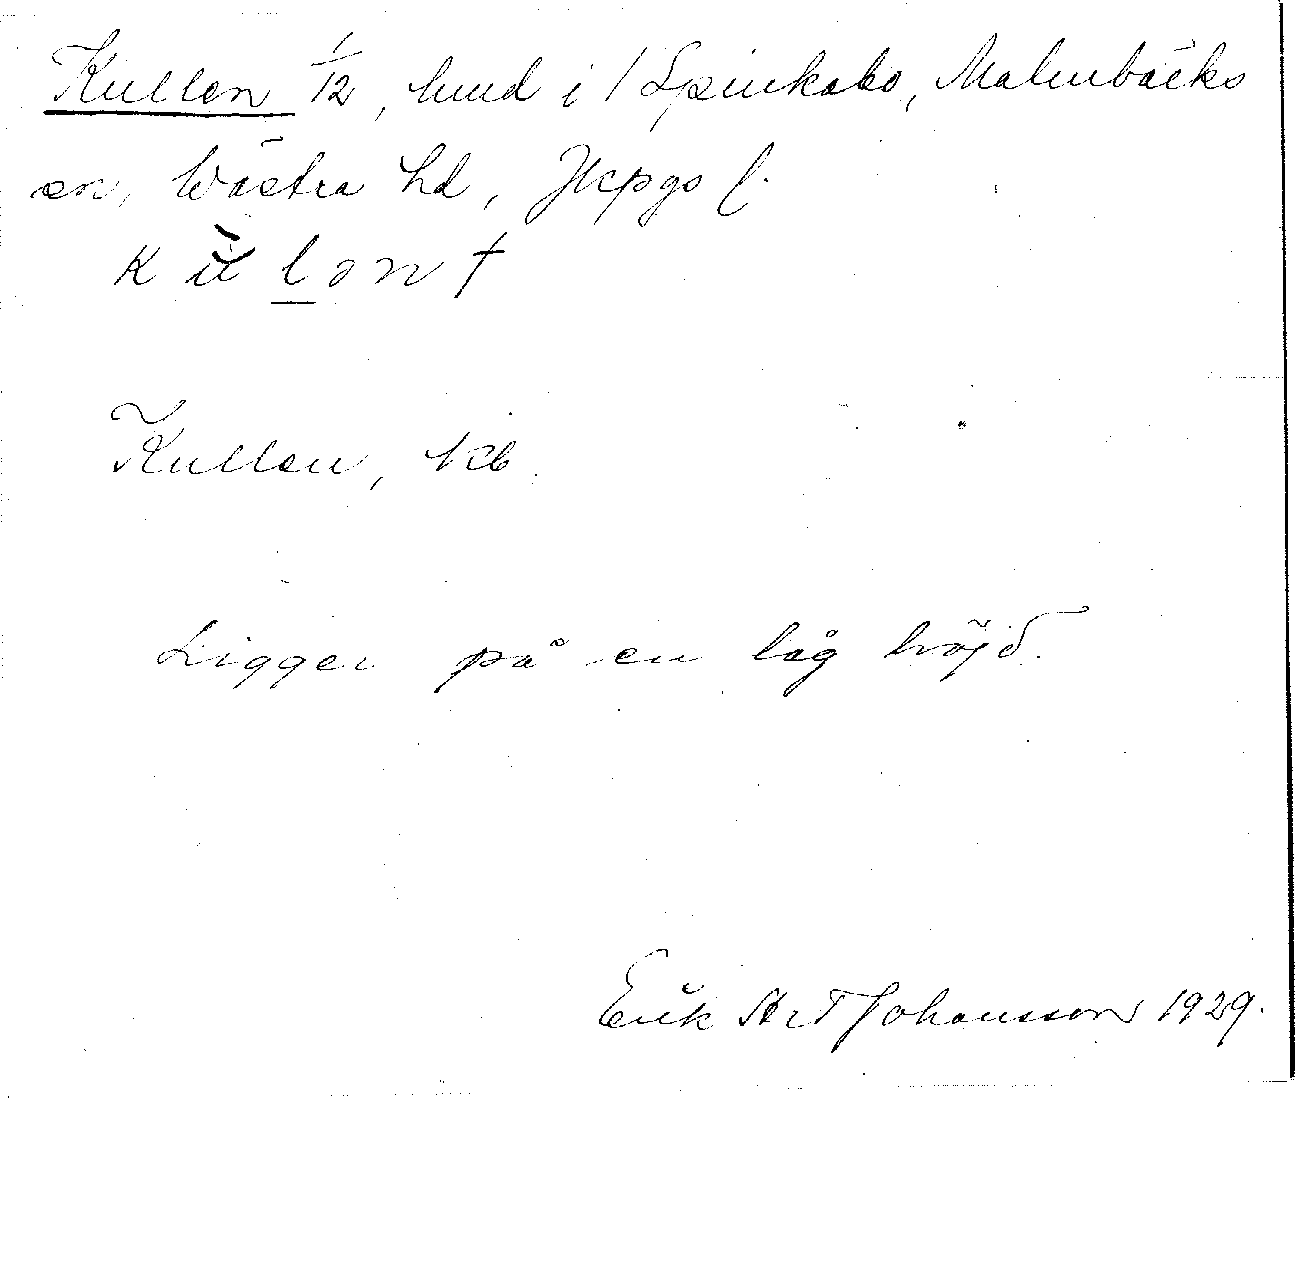 Kullen 1/12, hmd i 1 Spinkabo, Malmbäcks
sn, Västra hd, Jkpgs l.
k ŭ̈ l ə n †
Kullen, kb.
Ligger på en låg höjd.
Erik Art Johansson 1929.